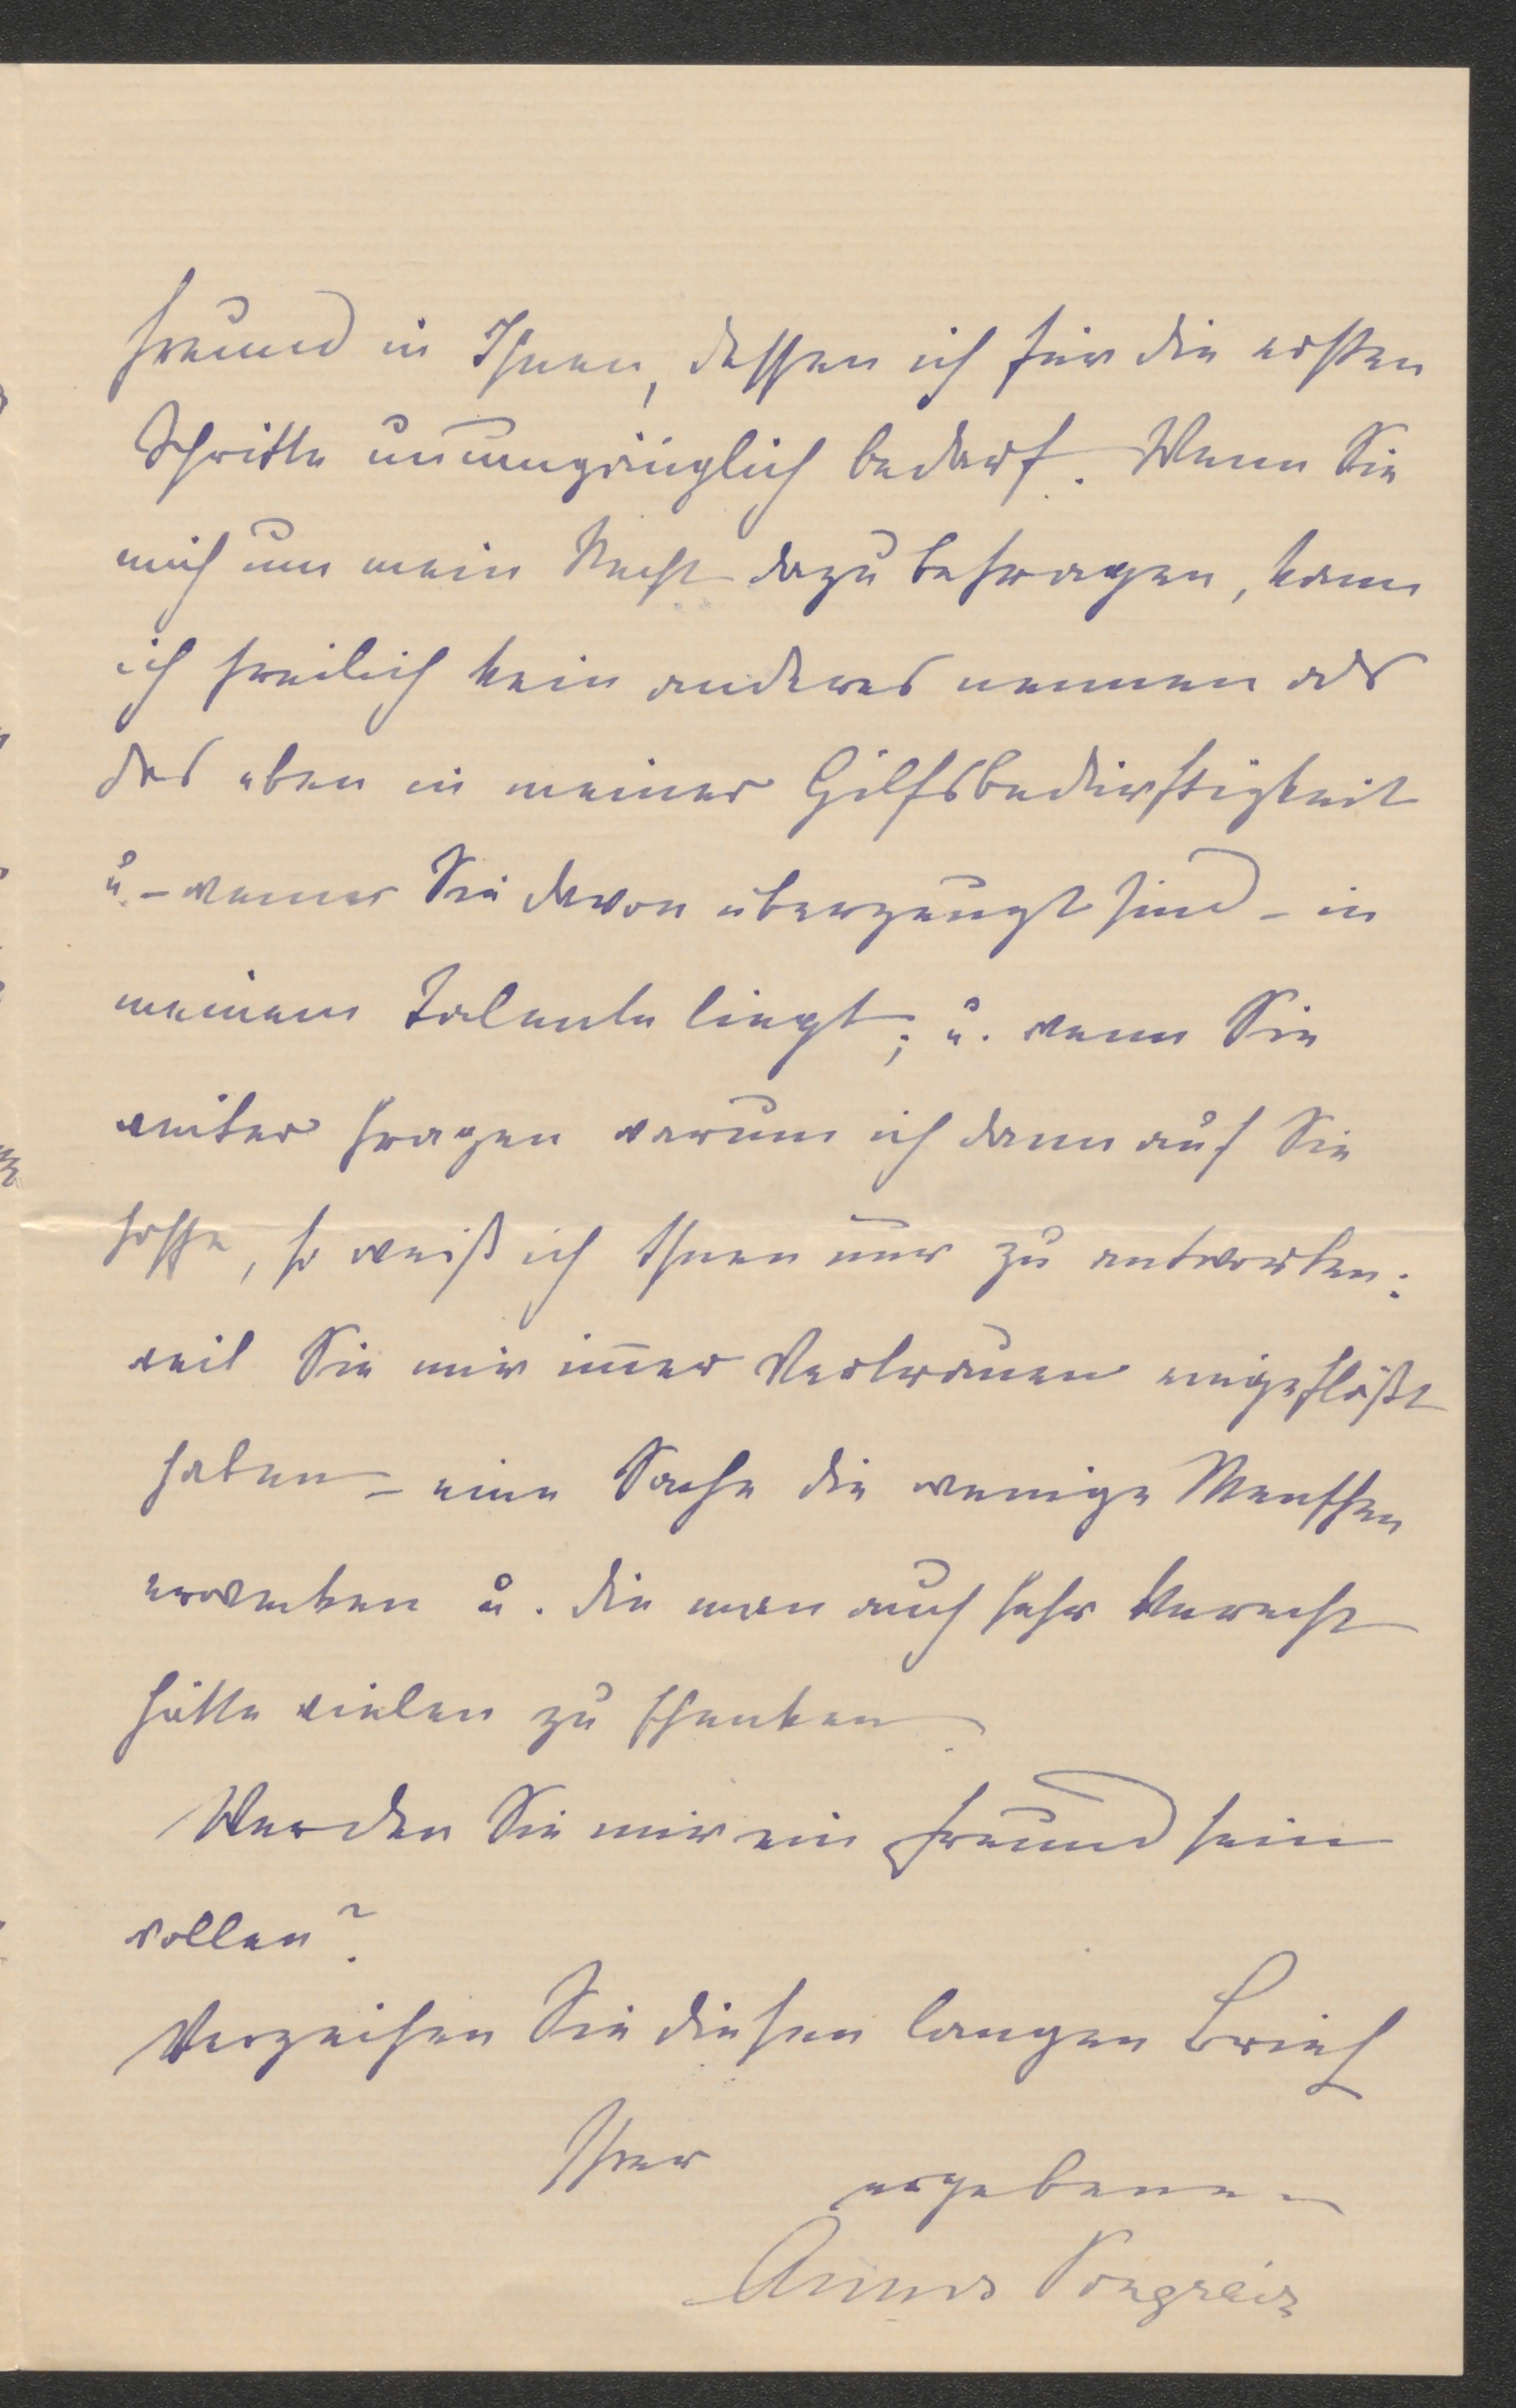 Freund in Ihnen, dessen ich für die ersten
Schritte unumgänglich bedarf. Wenn Sie
mich um mein Recht dazu befragen, kann
ich freilich kein anderes nennen als
das eben in meiner Hilfsbedürftigkeit
u. – wenn Sie davon überzeugt sind – in
meinem Talente liegt; u. wenn Sie
weiter fragen warum ich dann auf Sie
hoffe, so weiß ich Ihnen nur zu antworten:
weil Sie mir im̄er Vertrauen eingeflößt
haben – eine Sache die wenige Menschen
erwecken u. die man auch sehr Unrecht
hätte vielen zu schenken.
Werden Sie mir ein Freund sein
wollen?
Verzeihen Sie diesen langen Brief
Ihrer
ergebenen